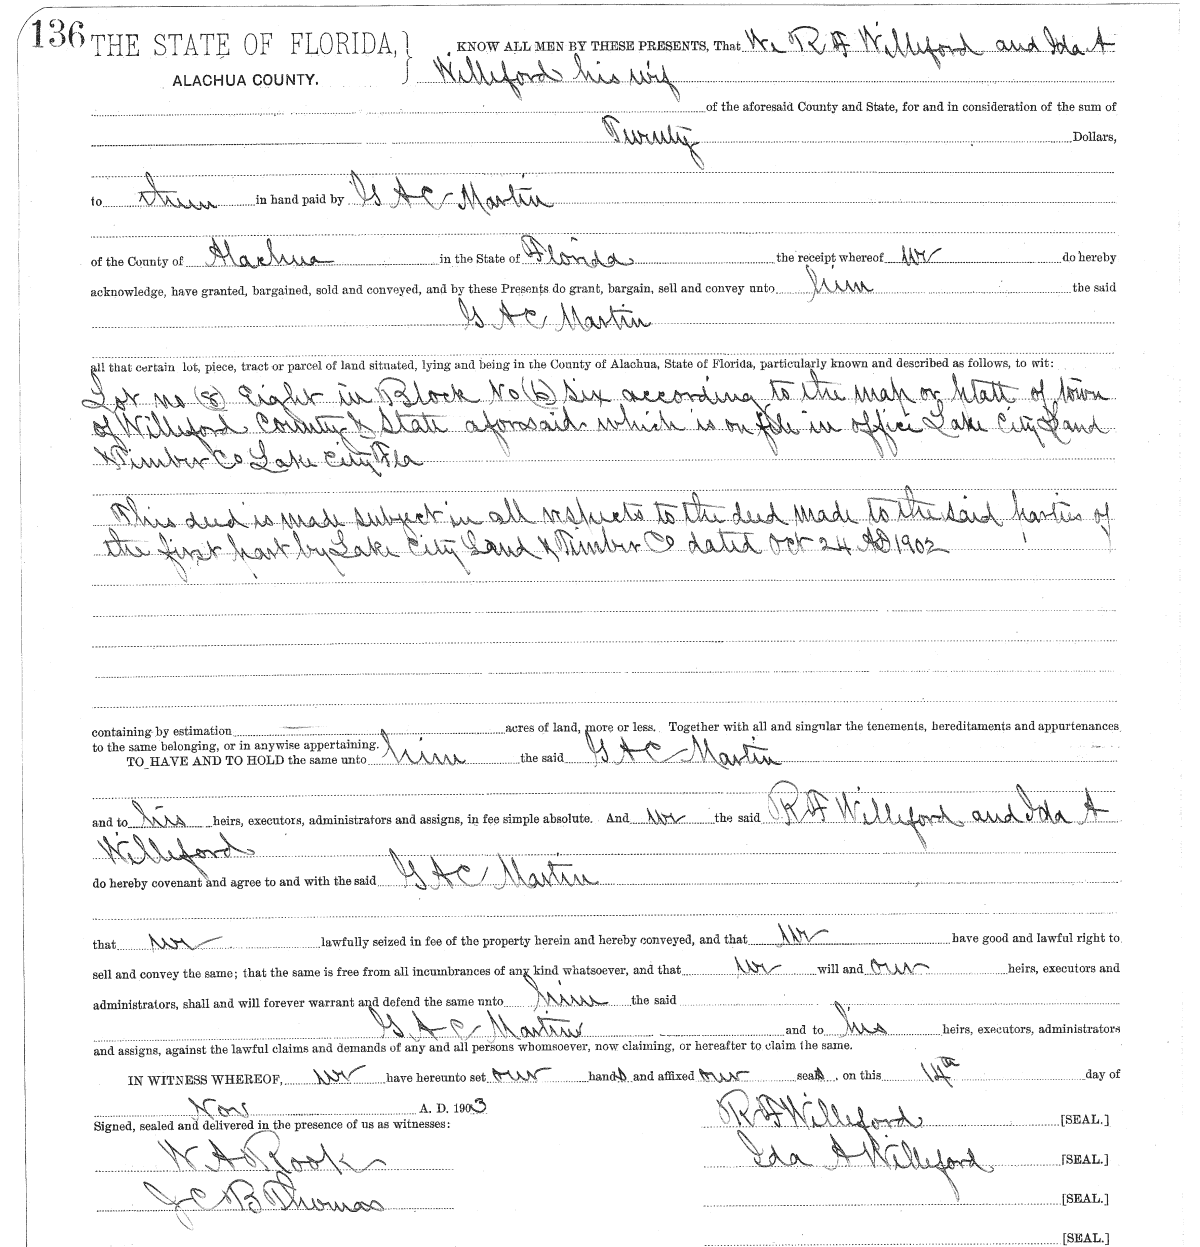 136 THE STATE OF FLORIDA, } KNOW ALL MEN BY THESE PRESENTS, That We R F Williford and Ida A
ALACHUA COUNTY. Williford his wife
of the aforesaid County and State, for and in consideration of the sum of
Twenty Dollars,
to them in hand paid by G A C Martin
of the County of Alachua in the State of Florida the receipt whereof we do hereby
acknowledge, have granted, bargained, sold and conveyed, and by these Presents do grant, bargain, sell and convey unto him the said
G A C Martin
all that certain lot, piece, tract or parcel of land situated, lying and being in the County of Alachua, State of Florida, particularly known and described as follows, to wit:
Lot no (8) Eight in Block No (6) Six according to the map or platt of town
of Williford County & State aforesaid which is on file in office Lake City Land
& Timber Co Lake City Fla
This deed is made subject in all respects to the deed made to the said parties of
the first part by Lake City Land & Timber Co dated Oct 24 AD 1902
containing by estimation acres of land, more or less. Together with all and singular the tenements, hereditaments and appurtenances
to the same belonging, or in anywise appertaining.
TO HAVE AND TO HOLD the same unto him the said G A C Martin
and to his heirs, executors, administrators and assigns, in fee simple absolute. And we the said R F Williford and Ida A
Williford
do hereby covenant and agree to and with the said G A C Martin
that we lawfully seized in fee of the property herein and hereby conveyed, and that we have good and lawful right to
sell and convey the same; that the same is free from all incumbrances of any kind whatsoever, and that we will and our heirs, executors and
administrators, shall and will forever warrant and defend the same unto him the said
G A C Martin and to his heirs, executors, administrators
and assigns, against the lawful claims and demands of any and all persons whomsoever, now claiming, or hereafter to claim the same.
IN WITNESS WHEREOF, we have hereunto set our hands and affixed our seals, on this 14th day of
Nov A. D. 1903
Signed, sealed and delivered in the presence of us as witnesses: R F Williford [SEAL.]
W A Rook Ida A Williford [SEAL.]
J C B Thomas [SEAL.]
[SEAL.]